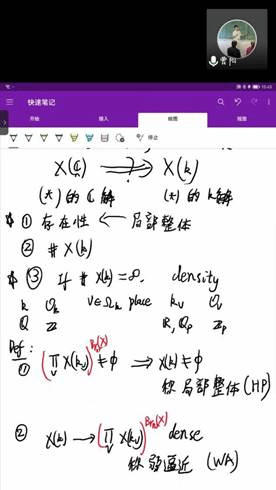 曹阳
15:45
快速笔记
开始 插入 绘图 视图
停止
X(ℂ) ⟹? X(k)
(*) 的 ℂ 解 (*) 的 k 解
① 存在性 ← 局部整体
② # X(k)
③ If # X(k) = ∞. density
k O_k v∈Ω_k place k_v O_v
ℚ ℤ ℝ, ℚ_p ℤ_p
Def:
① (∏_v X(k_v))^{Br(X)} ≠ ∅ ⟹ X(k) ≠ ∅
称 局部整体 (HP)
② X(k) → (∏_v X(k_v))^{Br(X)} dense
称 弱逼近 (WA)